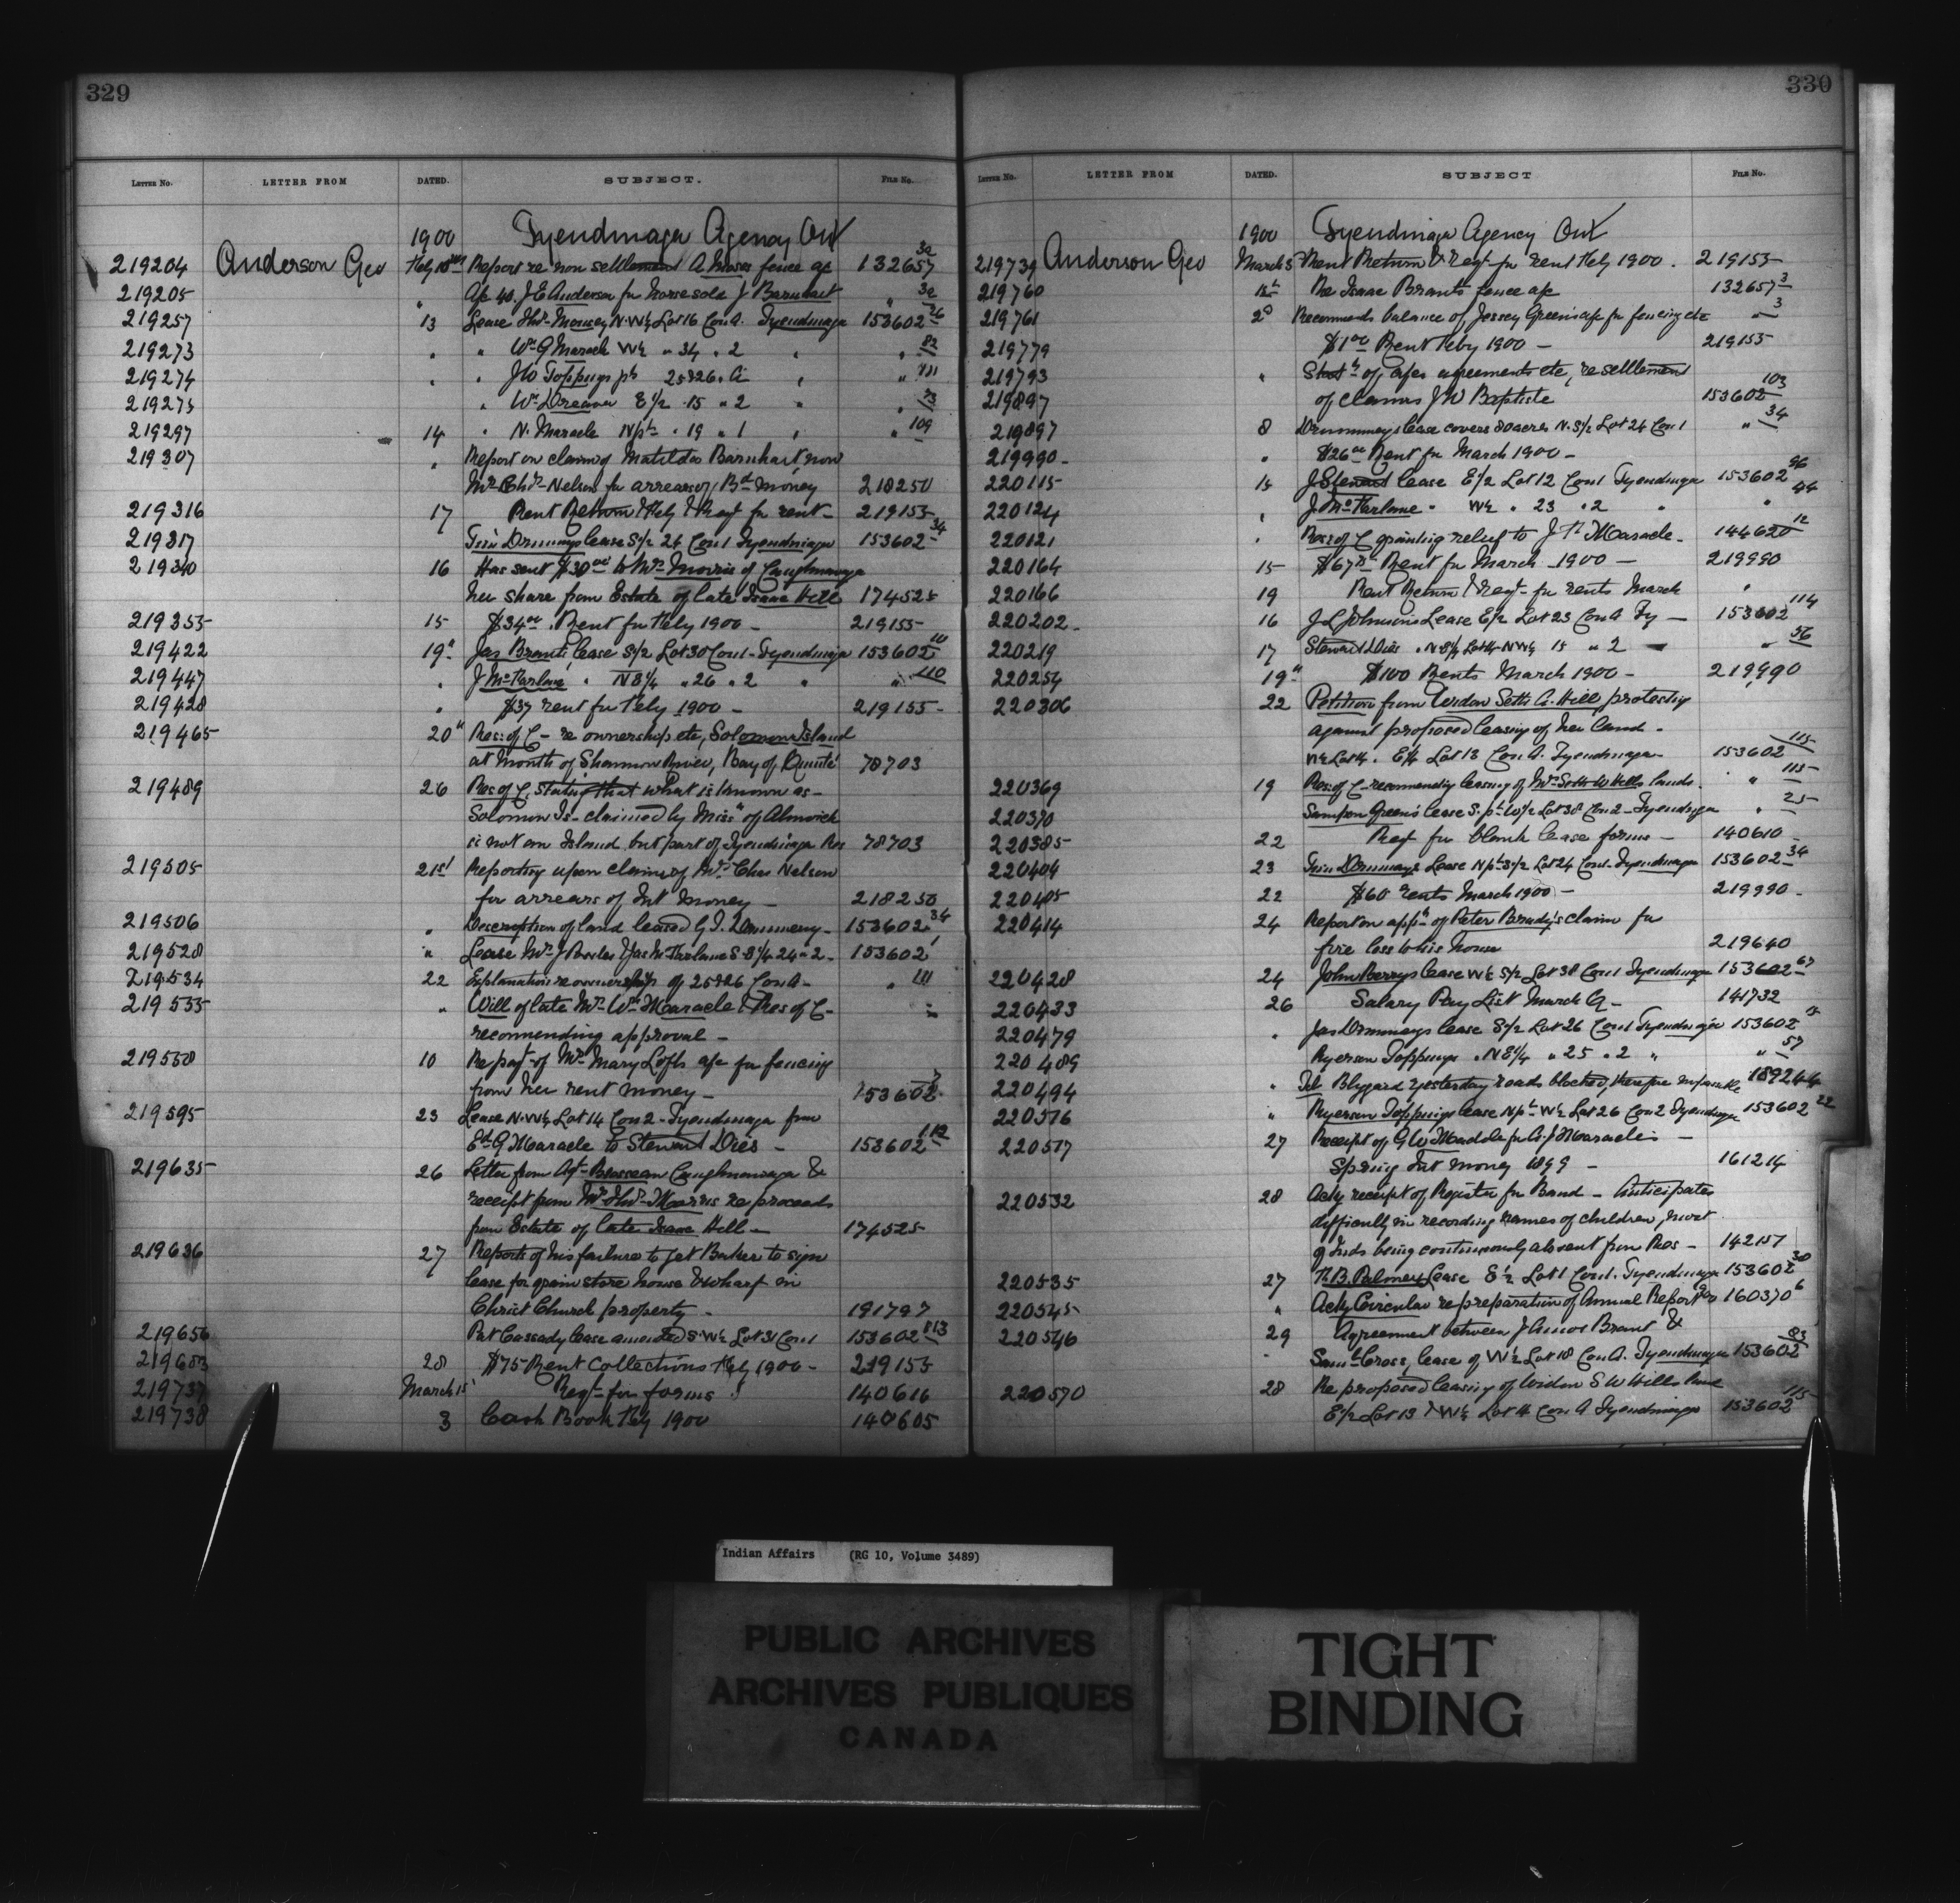 329
LETTER No. LETTER FROM DATED. SUBJECT. FILE No.
1900 Tyendinaga Agency Ont
219204 Anderson Geo Feby 10 Report re non settlement A Moses fence ac 132657 32
219205 " Ac 40. J E Anderson for horse sold J Barnhart " 32
219257 13 Lease Thos Mowey N.W¼ Lot 16 Con A. Tyendinaga 153602 26
219273 " " Wm G Maracle W½ " 34 " 2 " " 82
219274 " " J W Toppings pt 25&26 " A " " 111
219275 " Wm Dreaver E½ 15 " 2 " " 73
219297 14 " N. Maracle N pt " 19 " 1 " " 109
219307 " Report on claim of Matilda Barnhart, now
Mrs Chas Nelson for arrears of Bd money 218250
219316 17 Rent Return Feby & Reqt for rent 219155
219317 Guin Drummeys lease S½ 24 Con 1 Tyendinaga 153602 34
219340 16 Has sent $30.00 to Mrs Morris of Caughnawaga
her share from Estate of late Isaac Hill 174525
219355 15 $34.00 Rent for Feby 1900 - 219155
219422 19" Jas Brants lease S½ Lot 30 Con 1 - Tyendinaga 153602 10
219447 " J McFarlane " N E¼ " 26 " 2 " " 110
219428 " $37 rent for Feby 1900 - 219155 -
219465 20" Res: of C - re ownership etc, Solomon Island
at Mouth of Shannon River, Bay of Quinté 78703
219489 26 Res of C. stating that what is known as -
Solomon Is - claimed by Miss of Alnwick
is not an Island but part of Tyendinaga Res 78703
219505 21st Reporting upon claim of Mrs Chas Nelson
for arrears of Int Money - 218250
219506 " Description of land leased G. I. Drummery - 153602 34
219528 " Lease Mrs J Bowles & Jas McFarlane S-E¼ 24 " 2 - 153602 1
219534 22 Explanation re ownership of 25&26 Con A - " 111
219555 " Will of late Mr Wm Maracle & Res of C - "
recomending approval -
219558 10 Reqt of Mrs Mary Lofts ac for fencing
from her rent money - 153602 7
219595 23 Lease N.W¼ Lot 14 Con 2 - Tyendinaga from
Ed G Maracle to Stewart Dies - 153602 112
219635 26 Letter from Agt Brosseau Caughnawaga &
receipt from Mrs Thos Morris re proceeds
from Estate of late Isaac Hill - 174525
219636 27 Reports of his failure to get Baker to sign
lease for grain store house & wharf on
Christ Church property - 191797
219656 Pat Cassady lease amended S.W¼ Lot 31 Con 1 153602 113
219683 28 $75 Rent Collections Feby 1900 - 219155
219737 March 1st Reqt for forms 140616
219738 3 Cash Book Feby 1900 140605
330
LETTER No. LETTER FROM DATED. SUBJECT FILE No.
1900 Tyendinaga Agency Ont
219739 Anderson Geo March 3 Rent Return & Reqt for rent Feby 1900. 219155
219760 1st Re Isaac Brants fence ac 132657 3
219761 2d Recomends balance of Jessey Greens ac for fencing etc " 3
219779 $1.00 Rent Feby 1900 - 219155
219793 " Statt of acs agreements etc, re settlement
219897 of claims J W Baptiste 153602 103
219897 8 Drummeys lease covers 80 acres N. S½ Lot 24 Con 1 " 34
219990 - " $26.00 Rent for March 1900 -
220115 15 J Stewart lease E½ Lot 12 Con 1 Tyendinaga 153602 96
220124 " J McFarlane " W½ " 23 " 2 " " 44
220121 " Res: of C granting relief to J Maracle - 144620 12
220164 15 $67 Rent for March 1900 - 219990
220166 19 Rent Return & reqt for rents March "
220202 - 16 J L Johnsons Lease E½ Lot 23 Con A Ty - 153602 114
220219 17 Stewart Dies " N E¼ Lot 14 NW¼ 15 " 2 " 56
220254 19" $100 Rents March 1900 - 219990
220306 22 Petition from Widow Seth A. Hill protesting
against proposed leasing of her land -
W½ Lot 14. E½ Lot 13 Con A. Tyendinaga 153602 115
220369 19 Res: of C - recomending leasing of Mrs Seth W Hills lands. " 115
220370 Sampson Greens lease S. pt W½ Lot 38 Con 2 - Tyendinaga " 25
220385 22 Reqt for blank lease forms - 140610 -
220404 23 Guin Drummeys Lease N pt S½ Lot 24 Con 1 Tyendinaga 153602 34
220405 22 $60 rents March 1900 - 219990 -
220414 24 Report on appn of Peter Brady's claim for
fire loss to his house 219640
220428 24 John Berrys lease W½ S½ Lot 38 Con 1 Tyendinaga 153602 67
220433 26 Salary Pay List March Q - 141732
220479 " Jas Drummeys lease S½ Lot 26 Con 1 Tyendinaga 153602
220489 Ryerson Toppings " N E¼ " 25 " 2 " " 57
220494 " Tel Blizzard yesterday roads blocked, therefore impassable 189244
220516 " Ryerson Toppings lease N pt W½ Lot 26 Con 2 Tyendinaga 153602 22
220517 27 Receipt of G W Maddole for A. J Maracles -
Spring Int Money 1899 - 161214
220532 28 Ackg receipt of Register for Band - Anticipates
difficulty in recording names of children, most
of Inds being continuously absent from Res - 142157
220535 27 B. Palmers Lease E½ Lot 1 Con 1. Tyendinaga 153602 30
220545 " Ackg Circular re preparation of Annual Report 160370 6
220546 29 Agreement between J Amos Brant &
Saml Cross, lease of W½ Lot 18 Con A. Tyendinaga 153602 83
220570 28 Re proposed leasing of Widow S W Hills land
E½ Lot 13 & W½ Lot 14 Con A Tyendinaga 153602 115
Indian Affairs (RG 10, Volume 3489)
PUBLIC ARCHIVES
ARCHIVES PUBLIQUES
CANADA
TIGHT
BINDING